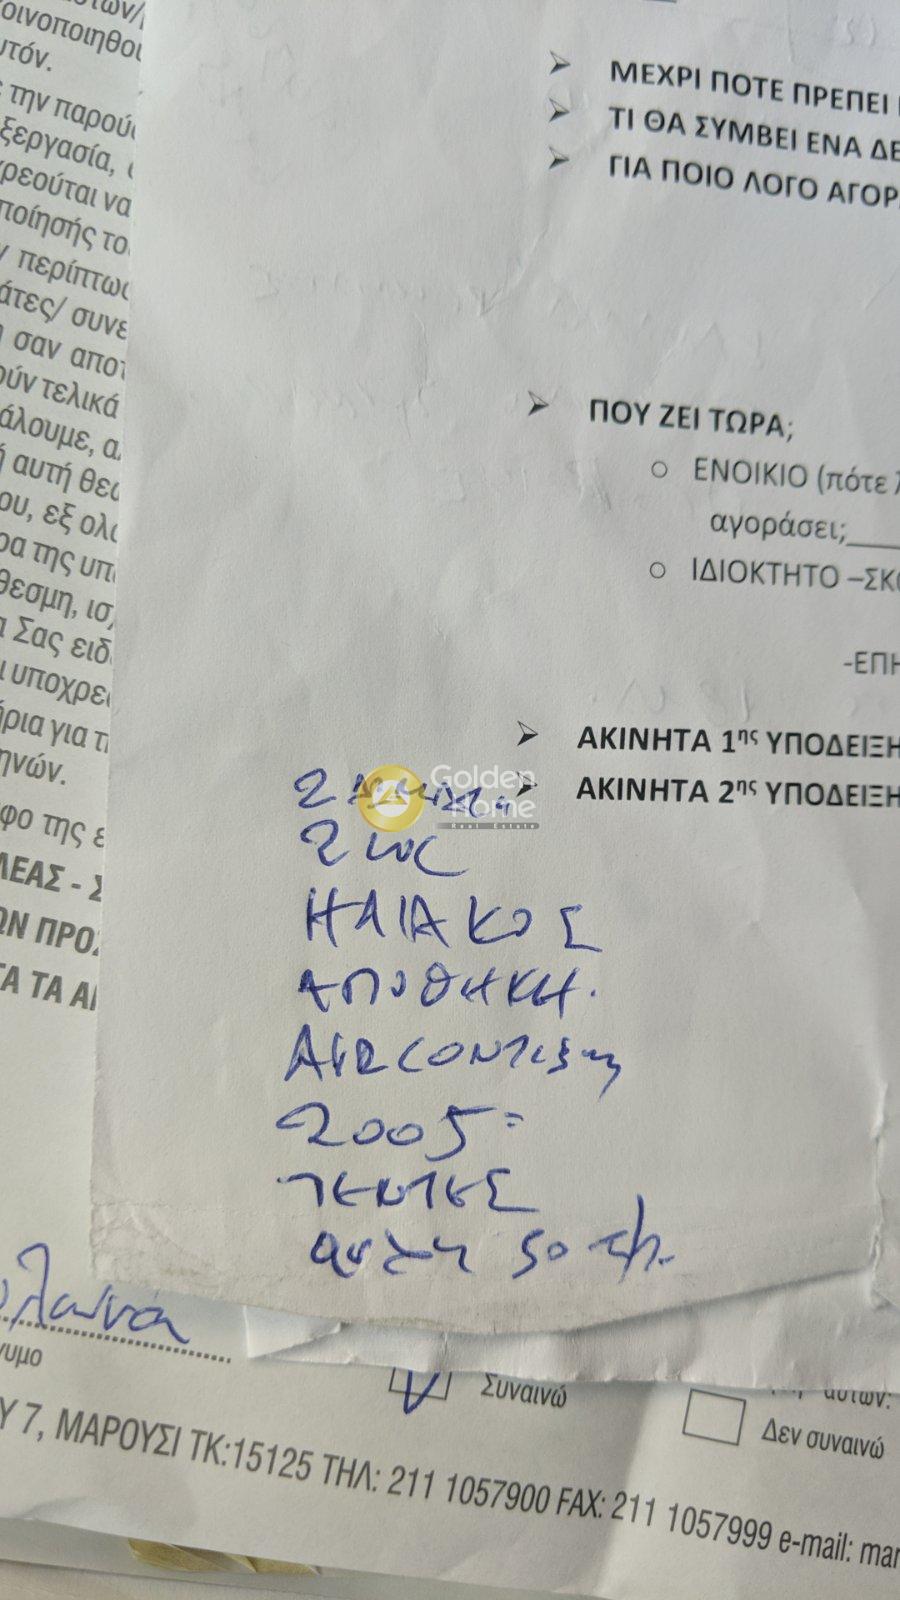 οινοποιηθού
υτόν.
ε την παρού
ξεργασία,
ρεούται να
ποίησής το
ν περίπτωσ
άτες/ συνε
η σαν αποτ
ούν τελικά
άλουμε,
ή αυτή θεσ
ου, εξ ολο
ρα της υπ
θεσμη, ισχ
α Σας ειδ
ι υποχρε
ήρια για τ
ηνών.
φο της ε
ΛΕΑΣ - Σ
ΩΝ ΠΡΟΣ
ΤΑ ΤΑ ΑΙ
➢ ΜΕΧΡΙ ΠΟΤΕ ΠΡΕΠΕΙ
➢ ΤΙ ΘΑ ΣΥΜΒΕΙ ΕΝΑ ΔΕ
➢ ΓΙΑ ΠΟΙΟ ΛΟΓΟ ΑΓΟΡ
➢ ΠΟΥ ΖΕΙ ΤΩΡΑ;
○ ΕΝΟΙΚΙΟ (πότε
αγοράσει;
○ ΙΔΙΟΚΤΗΤΟ –ΣΚΟ
-ΕΠΗ
➢ ΑΚΙΝΗΤΑ 1ης ΥΠΟΔΕΙΞΗ
➢ ΑΚΙΝΗΤΑ 2ης ΥΠΟΔΕΙΞΗ
Golden Home
Real Estate
2
2 WC
ΗΛΙΑΚΟΣ
ΑΠΟΘΗΚΗ.
AIRCONTISIN
2005
ΤΕΝΤΕΣ
αυλη 50 τμ.
νυμο
Συναινώ
αυτών:
Δεν συναινώ
Υ 7, ΜΑΡΟΥΣΙ ΤΚ:15125 ΤΗΛ: 211 1057900 FAX: 211 1057999 e-mail: mar